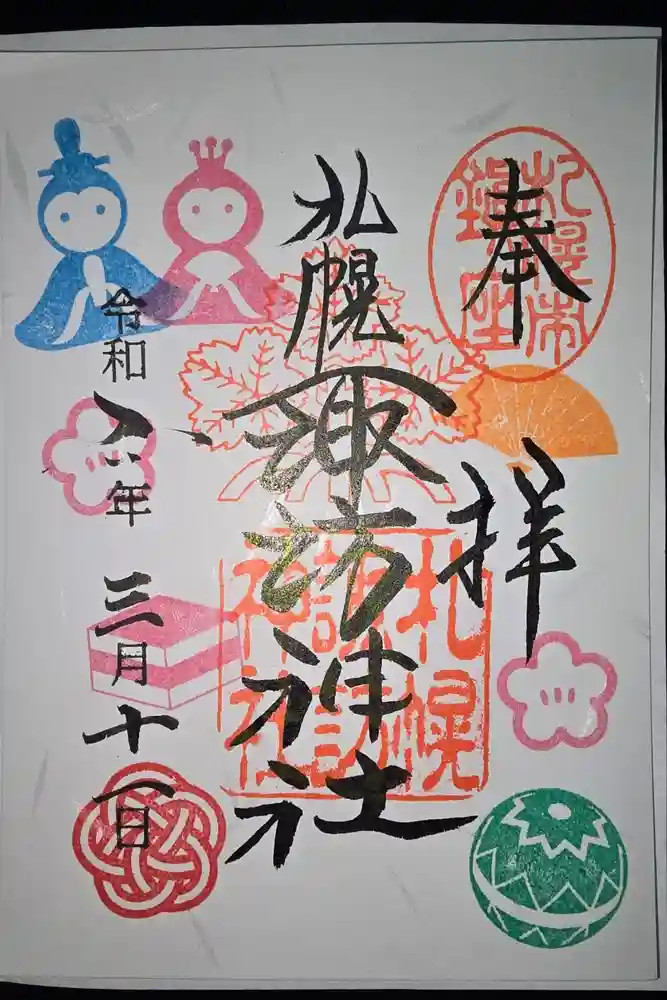 奉拝
札幌市
鎮座
札幌諏訪神社
札幌
諏訪
神社
令和八年三月十一日